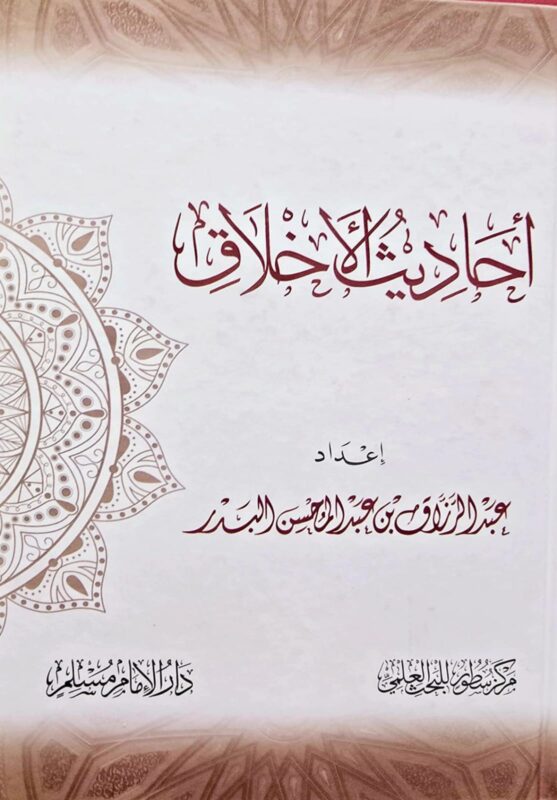 أحاديث الأخلاق
إعداد
عبد الرزاق بن عبد المحسن البدر
مركز سطور للبحث العلمي
دار الإمام مسلم